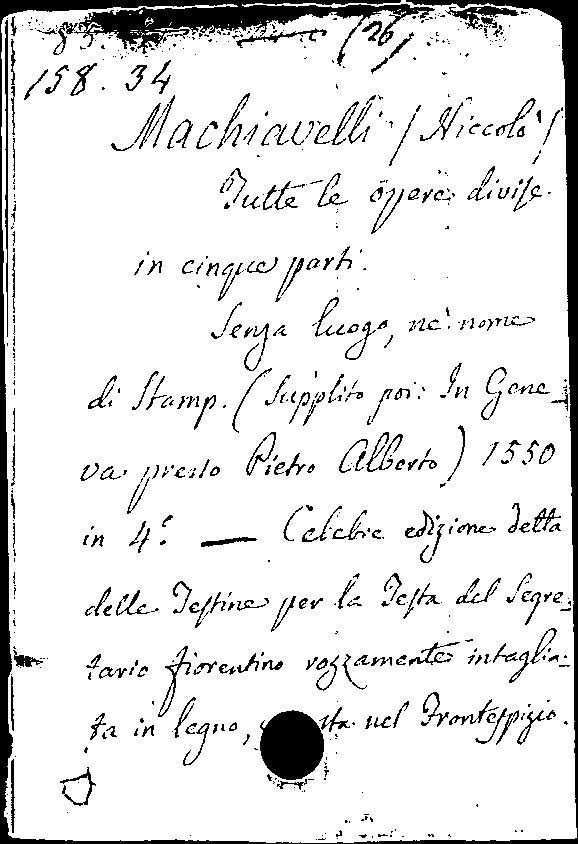 85. (26)
158. 34
Machiavelli (Niccolò)
Tutte le opere divise
in cinque parti.
Senza luogo, nè nome
di Stamp. (Supplito poi: In Gene-
va presso Pietro Alberto) 1550
in 4.º — Celebre edizione detta
delle Testine per la Testa del Segre-
tario fiorentino rozzamente intaglia-
ta in legno, nel Frontespizio.